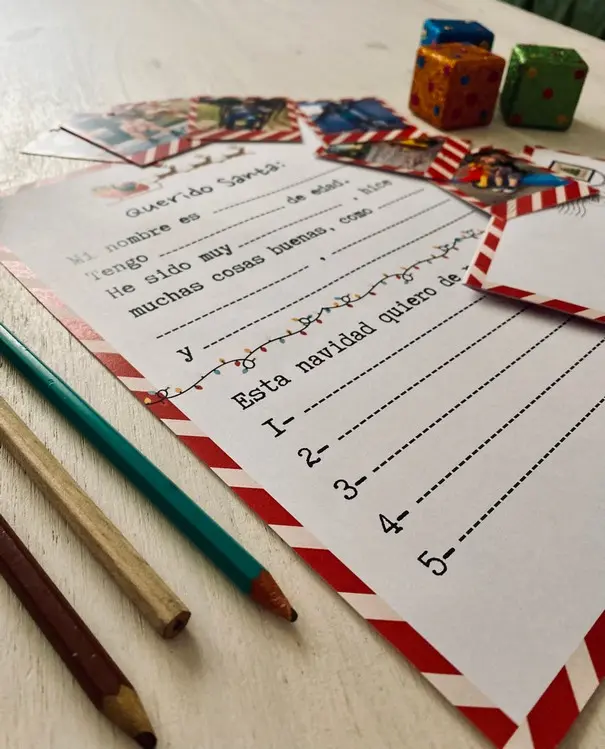 Querido Santa:
Mi nombre es
Tengo de edad.
He sido muy , hice
muchas cosas buenas, como
,
y
Esta navidad quiero de
1-
2-
3-
4-
5-